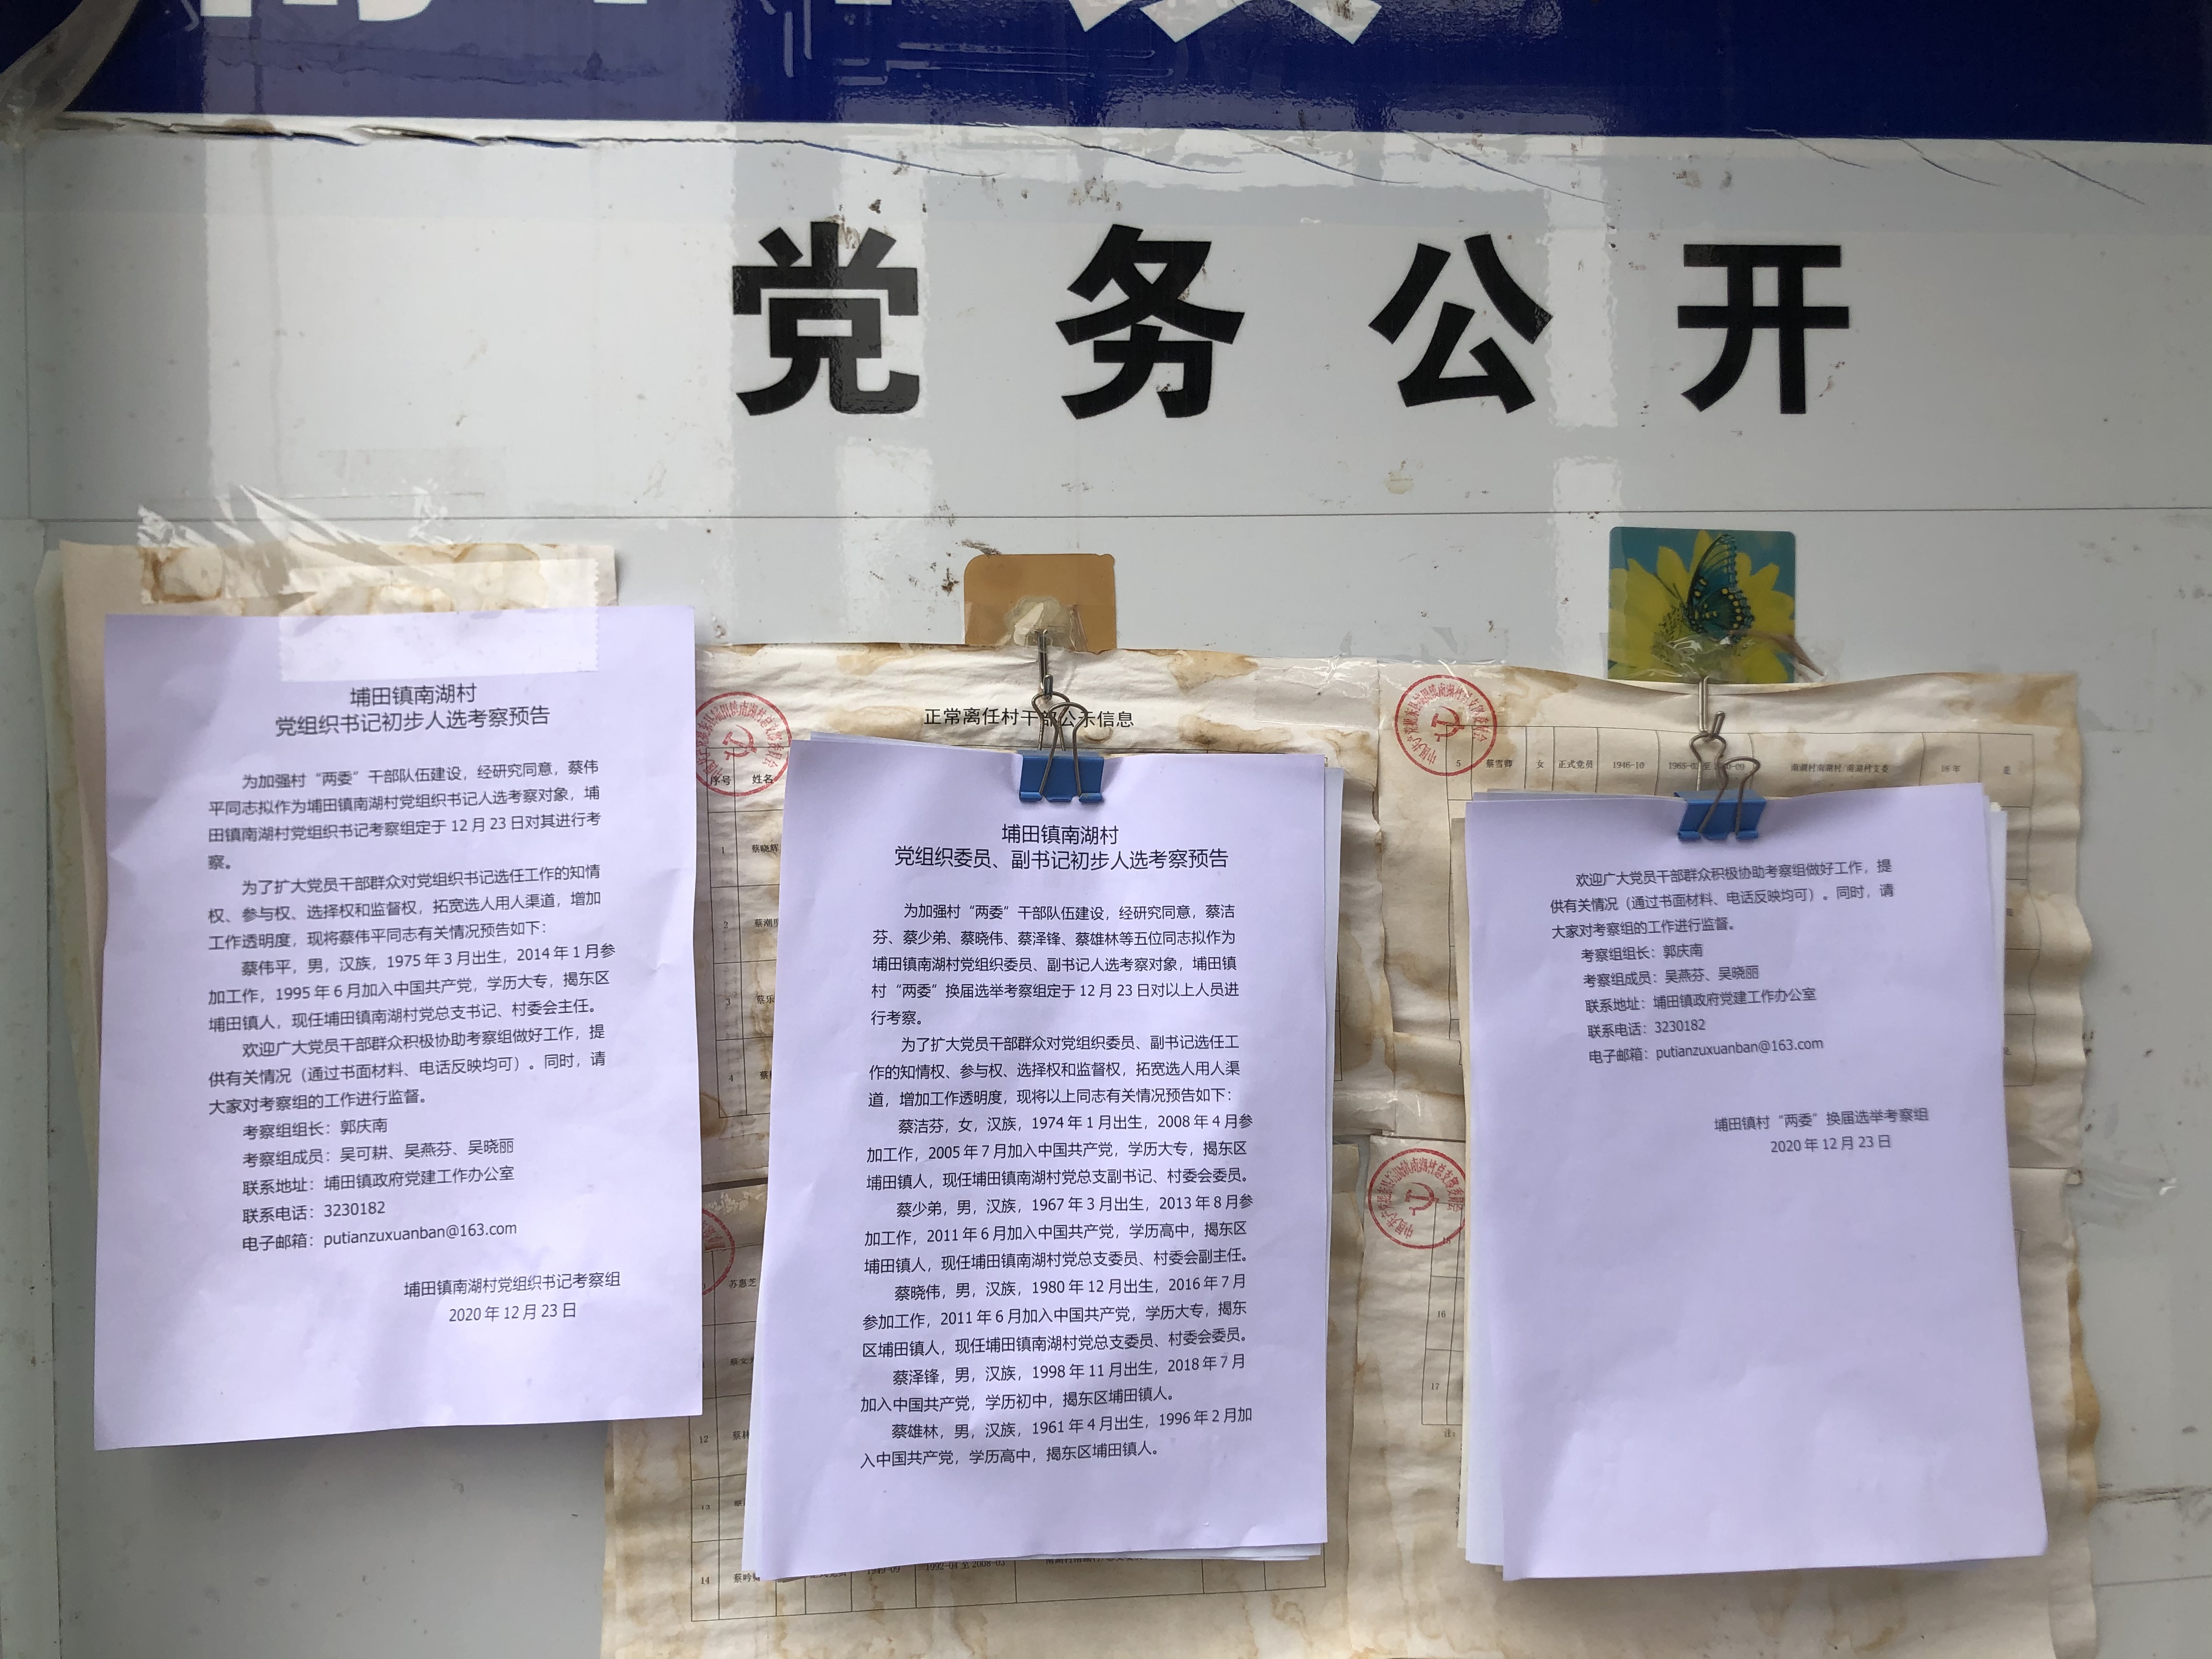 党务公开
埔田镇南湖村
党组织书记初步人选考察预告
为加强村“两委”干部队伍建设，经研究同意，蔡伟
平同志拟作为埔田镇南湖村党组织书记人选考察对象，埔
田镇南湖村党组织书记考察组定于 12 月 23 日对其进行考
察。
为了扩大党员干部群众对党组织书记选任工作的知情
权、参与权、选择权和监督权，拓宽选人用人渠道，增加
工作透明度，现将蔡伟平同志有关情况预告如下：
蔡伟平，男，汉族，1975 年 3 月出生，2014 年 1 月参
加工作，1995 年 6 月加入中国共产党，学历大专，揭东区
埔田镇人，现任埔田镇南湖村党总支书记、村委会主任。
欢迎广大党员干部群众积极协助考察组做好工作，提
供有关情况（通过书面材料、电话反映均可）。同时，请
大家对考察组的工作进行监督。
考察组组长：郭庆南
考察组成员：吴可耕、吴燕芬、吴晓丽
联系地址：埔田镇政府党建工作办公室
联系电话：3230182
电子邮箱：putianzuxuanban@163.com
埔田镇南湖村党组织书记考察组
2020 年 12 月 23 日
正常离任村干部公示信息
序号 姓名
1 蔡晓辉
2
3
4
苏惠芝
12
13
14
埔田镇南湖村
党组织委员、副书记初步人选考察预告
为加强村“两委”干部队伍建设，经研究同意，蔡洁
芬、蔡少弟、蔡晓伟、蔡泽锋、蔡雄林等五位同志拟作为
埔田镇南湖村党组织委员、副书记人选考察对象，埔田镇
村“两委”换届选举考察组定于 12 月 23 日对以上人员进
行考察。
为了扩大党员干部群众对党组织委员、副书记选任工
作的知情权、参与权、选择权和监督权，拓宽选人用人渠
道，增加工作透明度，现将以上同志有关情况预告如下：
蔡洁芬，女，汉族，1974 年 1 月出生，2008 年 4 月参
加工作，2005 年 7 月加入中国共产党，学历大专，揭东区
埔田镇人，现任埔田镇南湖村党总支副书记、村委会委员。
蔡少弟，男，汉族，1967 年 3 月出生，2013 年 8 月参
加工作，2011 年 6 月加入中国共产党，学历高中，揭东区
埔田镇人，现任埔田镇南湖村党总支委员、村委会副主任。
蔡晓伟，男，汉族，1980 年 12 月出生，2016 年 7 月
参加工作，2011 年 6 月加入中国共产党，学历大专，揭东
区埔田镇人，现任埔田镇南湖村党总支委员、村委会委员。
蔡泽锋，男，汉族，1998 年 11 月出生，2018 年 7 月
加入中国共产党，学历初中，揭东区埔田镇人。
蔡雄林，男，汉族，1961 年 4 月出生，1996 年 2 月加
入中国共产党，学历高中，揭东区埔田镇人。
5 蔡雪卿 女 正式党员 1946-10
16
17
欢迎广大党员干部群众积极协助考察组做好工作，提
供有关情况（通过书面材料、电话反映均可）。同时，请
大家对考察组的工作进行监督。
考察组组长：郭庆南
考察组成员：吴燕芬、吴晓丽
联系地址：埔田镇政府党建工作办公室
联系电话：3230182
电子邮箱：putianzuxuanban@163.com
埔田镇村“两委”换届选举考察组
2020 年 12 月 23 日